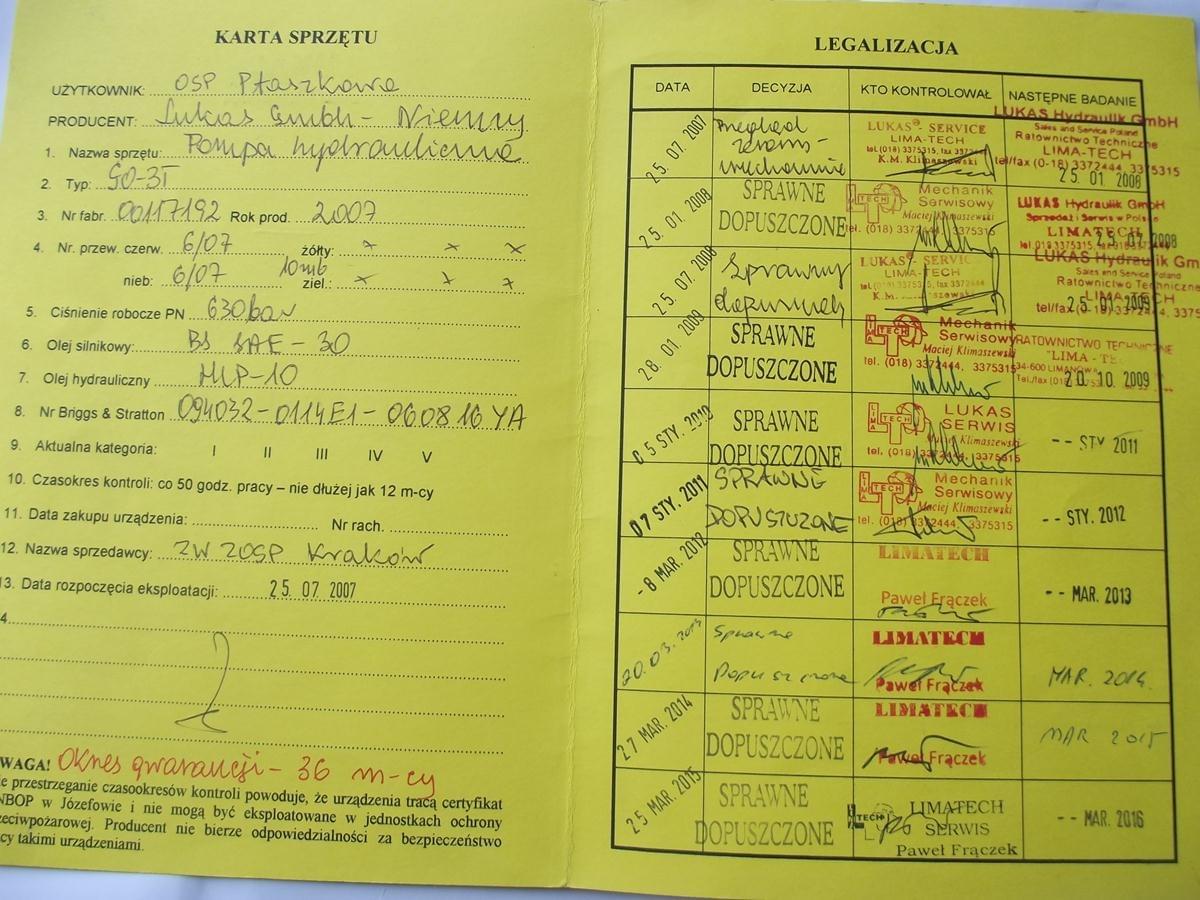 KARTA SPRZĘTU
UŻYTKOWNIK: OSP Ptaszkowa
PRODUCENT: Lukas Gmbh - Niemcy
1. Nazwa sprzętu: Pompa hydrauliczna
2. Typ: GO-3T
3. Nr fabr. 00117192 Rok prod. 2007
4. Nr. przew. czerw. 6/07 żółty: x x x
nieb: 6/07 10mb ziel.: x x x
5. Ciśnienie robocze PN 630bar
6. Olej silnikowy: BS SAE-30
7. Olej hydrauliczny HLP-10
8. Nr Briggs & Stratton 094032-0114E1-060816YA
9. Aktualna kategoria: I II III IV V
10. Czasokres kontroli: co 50 godz. pracy – nie dłużej jak 12 m-cy
11. Data zakupu urządzenia: Nr rach.
12. Nazwa sprzedawcy: ZW ZOSP Kraków
13. Data rozpoczęcia eksploatacji: 25. 07. 2007
4.
WAGA! Okres gwarancji - 36 m-cy
e przestrzeganie czasookresów kontroli powoduje, że urządzenia tracą certyfikat
NBOP w Józefowie i nie mogą być eksploatowane w jednostkach ochrony
eciwpożarowej. Producent nie bierze odpowiedzialności za bezpieczeństwo
cy takimi urządzeniami.
LEGALIZACJA
DATA DECYZJA KTO KONTROLOWAŁ NASTĘPNE BADANIE
25. 07. 2007
Przegląd
LUKAS® - SERVICE
LIMA-TECH
tel.(018) 3375315
K.M. Klimaszewski
LUKAS Hydraulik GmbH
Sales and Service Poland
Ratownictwo Techniczne
LIMA-TECH
tel/fax (0-18) 3372444, 3375315
25. 01. 2008
25. 01. 2008
SPRAWNE
DOPUSZCZONE
TECH
Mechanik
Serwisowy
Maciej Klimaszewski
tel. (018) 3372444, 3375315
LUKAS Hydraulik GmbH
Sprzedaż i Serwis w Polsce
LIMATECH
25. 07. 2008
25. 07. 2008
Sprawny
LUKAS® - SERVICE
LIMA-TECH
K.M. Klimaszewski
LUKAS Hydraulik Gm
Sales and Service Poland
Ratownictwo Techniczne
LIMA-TECH
tel/fax (0-18) 3372444, 3375
25. 01. 2009
28. 01. 2009
SPRAWNE
DOPUSZCZONE
LIMA TECH
Mechanik
Serwisowy
Maciej Klimaszewski
tel. (018) 3372444, 3375315
RATOWNICTWO TECHNICZNE
"LIMA - TE
34-600 LIMANOWA
Tel./fax (018)
20. 10. 2009
05 STY. 2010
SPRAWNE
DOPUSZCZONE
LIMA TECH
LUKAS
SERWIS
Maciej Klimaszewski
tel. (018) 3372444, 3375315
-- STY 2011
07 STY. 2011
SPRAWNE
DOPUSZCZONE
LIMA TECH
Mechanik
Serwisowy
Maciej Klimaszewski
tel. (018) 3372444, 3375315
-- STY. 2012
-8 MAR. 2012
SPRAWNE
DOPUSZCZONE
LIMATECH
Paweł Frączek
-- MAR. 2013
20.03.2013
Sprawne
Dopuszczone
LIMATECH
Paweł Frączek
MAR. 2014.
27 MAR. 2014
SPRAWNE
DOPUSZCZONE
LIMATECH
Paweł Frączek
MAR 2015
25 MAR. 2015
SPRAWNE
DOPUSZCZONE
TECH
LIMATECH
SERWIS
Paweł Frączek
-- MAR. 2016